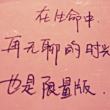 在生命中
再无聊的时光
也是限量版.